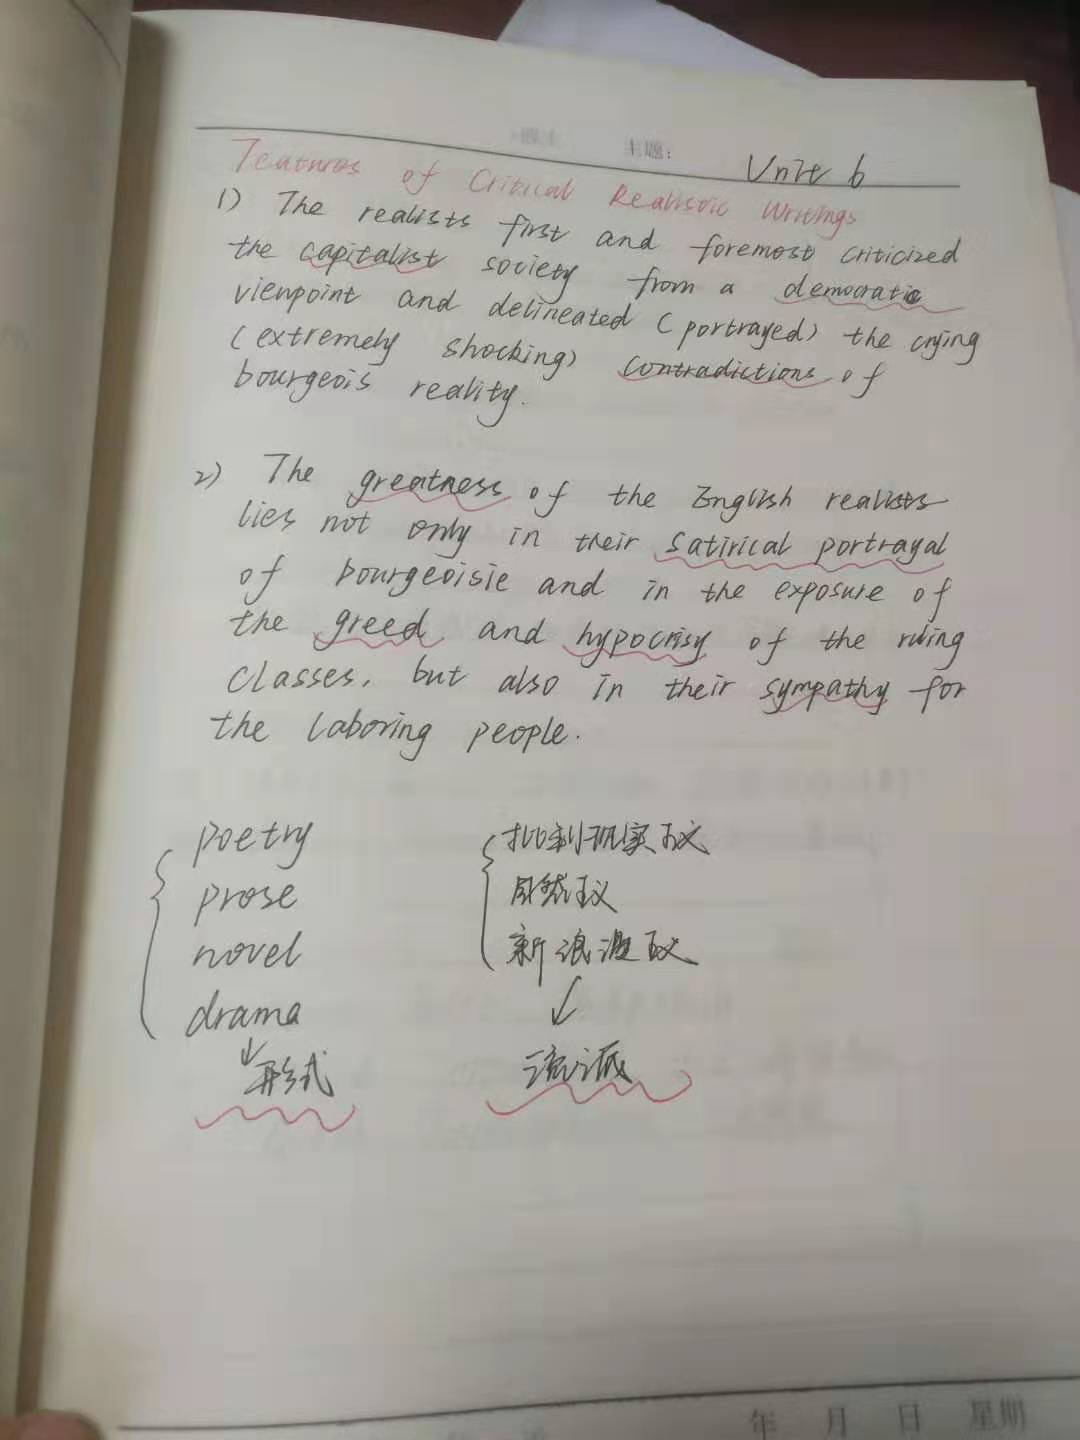 主题:
Unit 6
Features of Critical Realistic Writings
1) The realists first and foremost criticized
the capitalist society from a democratic
viewpoint and delineated (portrayed) the crying
(extremely shocking) contradictions of
bourgeois reality.
2) The greatness of the English realists
lies not only in their satirical portrayal
of bourgeoisie and in the exposure of
the greed and hypocrisy of the ruling
classes, but also in their sympathy for
the laboring people.
poetry
prose
novel
drama
形式
批判现实主义
自然主义
新浪漫主义
流派
年 月 日 星期